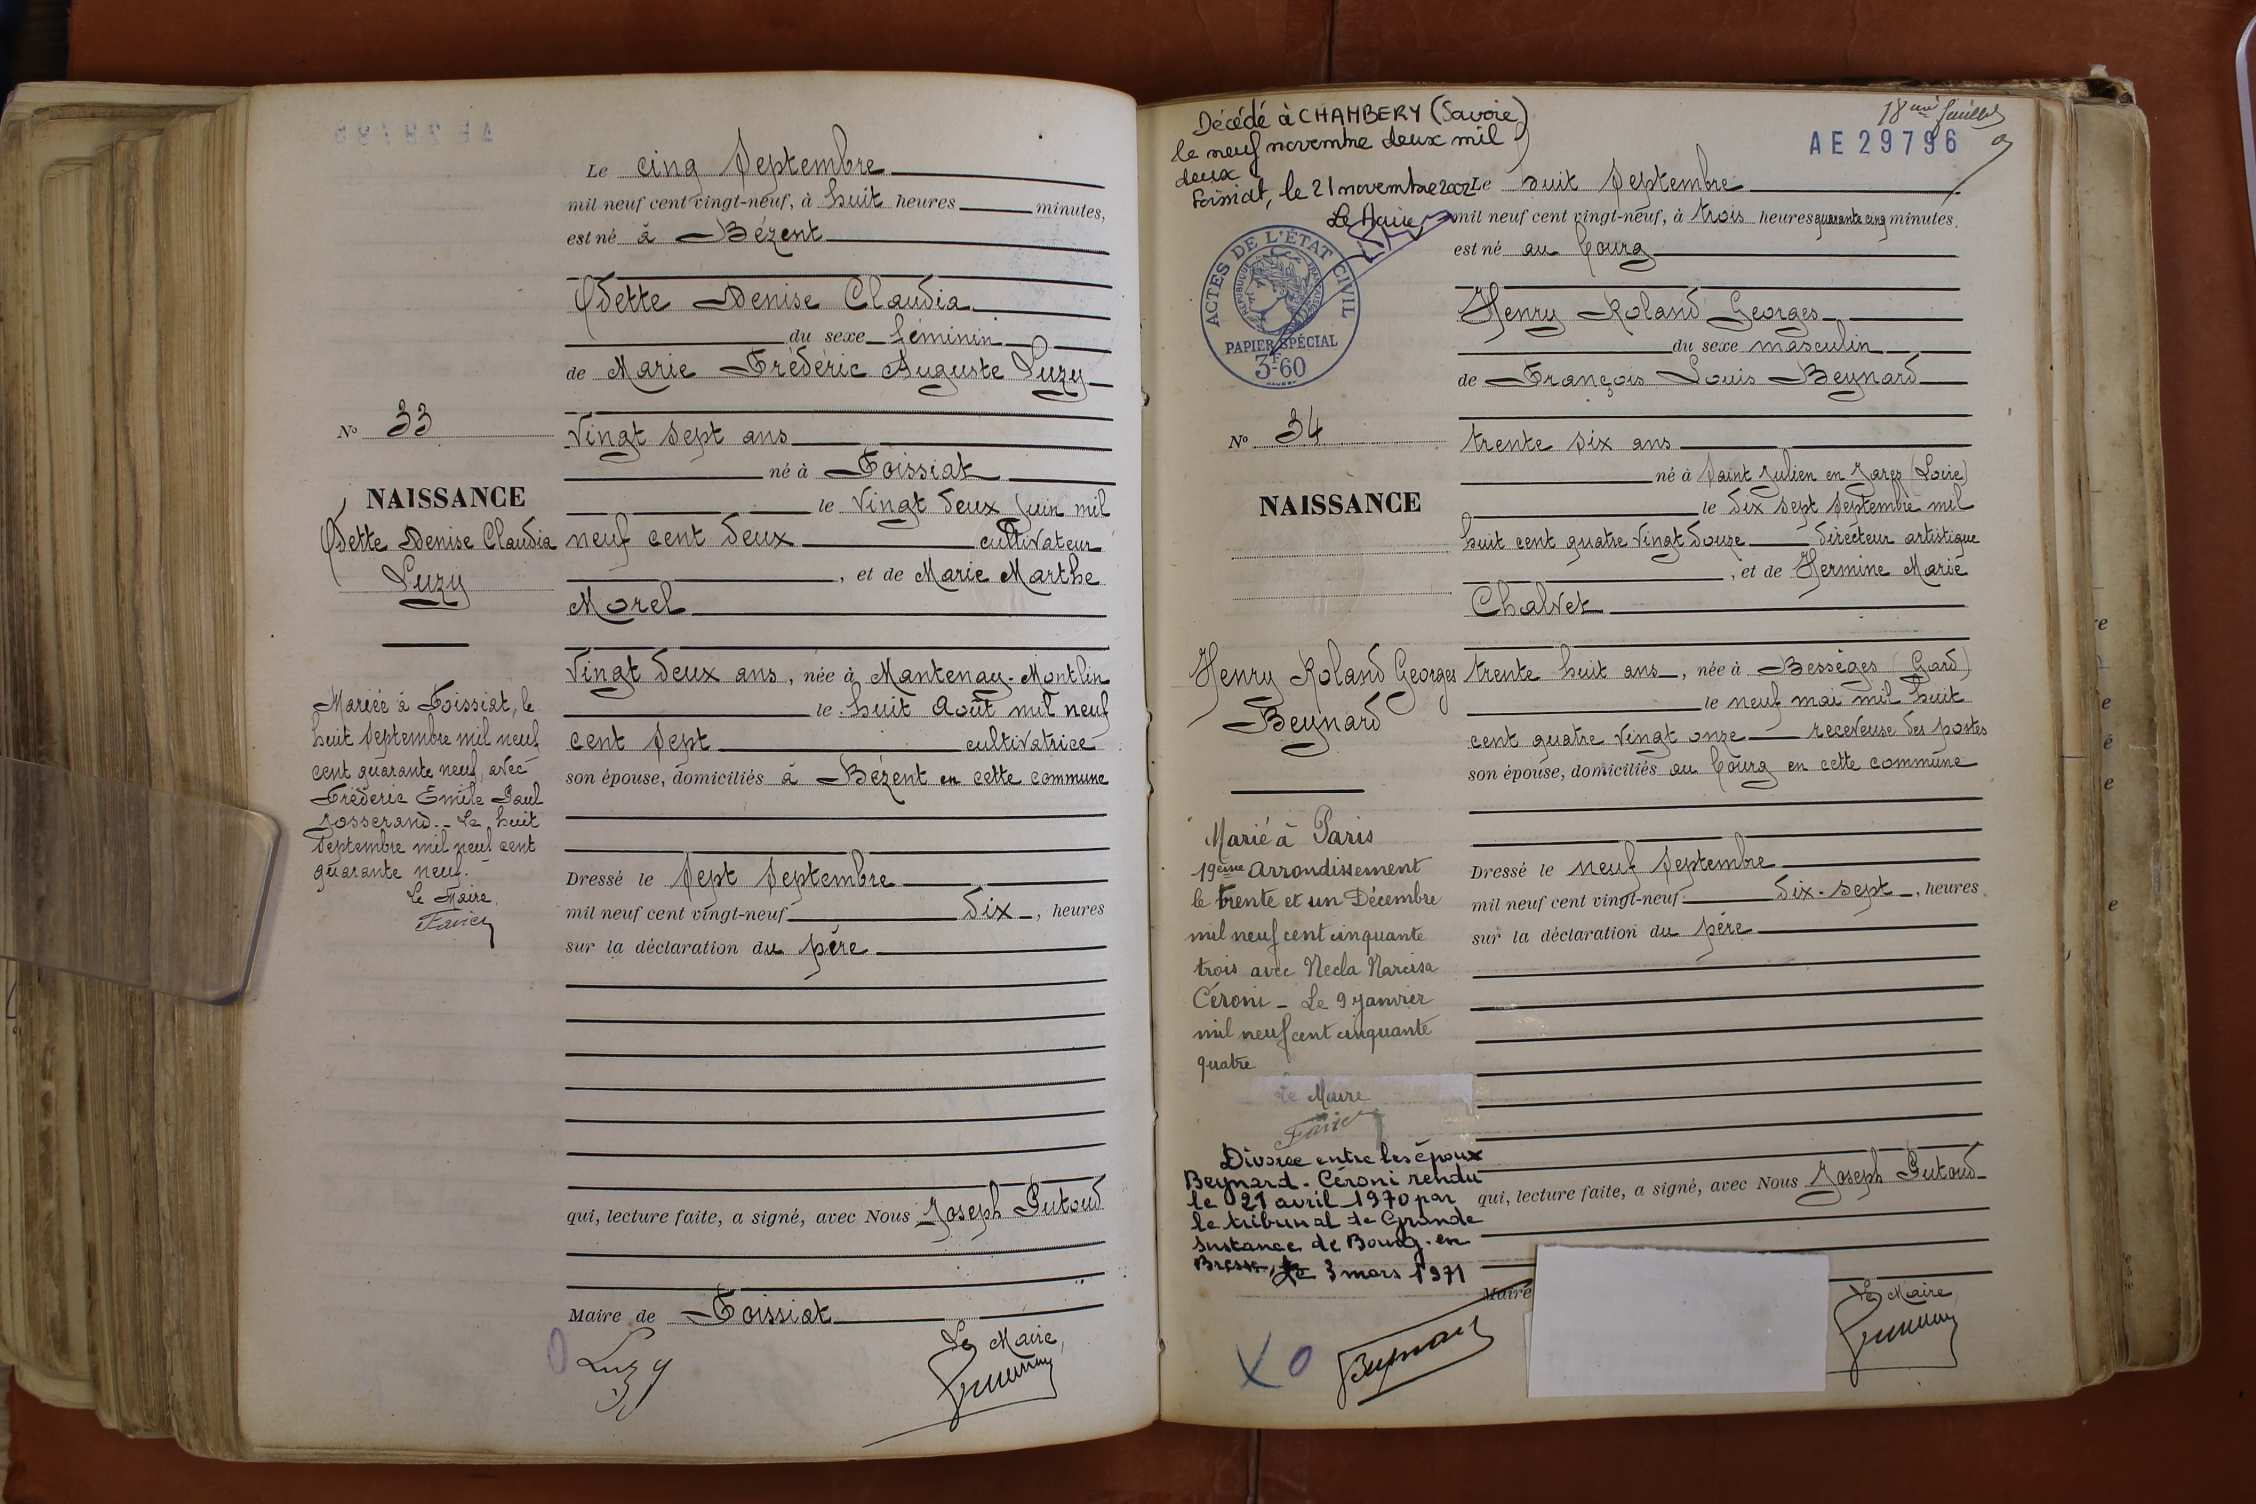 Le cinq Septembre
mil neuf cent vingt-neuf, à huit heures minutes,
est né à Bézent
Odette Denise Claudia
du sexe féminin
de Marie Frédéric Auguste Luzy
N° 33
vingt sept ans
né à Foissiat
NAISSANCE
le vingt deux Juin mil
Odette Denise Claudia
Luzy
neuf cent deux cultivateur
, et de Marie Marthe
Morel
vingt deux ans, née à Mantenay-Montlin
le huit Août mil neuf
cent sept cultivatrice
son épouse, domiciliés à Bézent en cette commune
Mariée à Foissiat, le
huit Septembre mil neuf
cent quarante neuf, avec
Fréderic Emile Paul
Josserand.- Le huit
Septembre mil neuf cent
quarante neuf.
Le Maire,
Favier
Dressé le sept Septembre
mil neuf cent vingt-neuf dix, heures
sur la déclaration du père
qui, lecture faite, a signé, avec Nous Joseph Putoud
Maire de Foissiat
Luzy
Le Maire,
Décédé à CHAMBERY (Savoie)
le neuf novembre deux mil
deux
Foissiat, le 21 novembre 2002
Le Maire
18ème feuillet
AE 29796
Le huit Septembre
mil neuf cent vingt-neuf, à trois heures quarante cinq minutes,
est né au bourg
ACTES DE L'ÉTAT CIVIL
RÉPUBLIQUE FRANÇAISE
PAPIER SPÉCIAL
3F60
Henry Roland Georges
du sexe masculin
de François Louis Beynard
N° 34
trente six ans
né à Saint Julien en Jarez (Loire)
NAISSANCE
le dix sept Septembre mil
huit cent quatre vingt douze directeur artistique
, et de Hermine Marie
Chalvet
Henry Roland Georges
Beynard
trente huit ans, née à Bessèges (Gard)
le neuf mai mil huit
cent quatre vingt onze receveuse des postes
son épouse, domiciliés au bourg en cette commune
Marié à Paris
19ème Arrondissement
le trente et un Décembre
mil neuf cent cinquante
trois avec Necla Narcisa
Céroni - Le 9 janvier
mil neuf cent cinquante
quatre
Le Maire
Favier
Dressé le neuf Septembre
mil neuf cent vingt-neuf dix-sept, heures
sur la déclaration du père
Divorce entre les époux
Beynard - Céroni rendu
le 21 avril 1970 par
le tribunal de Grande
Instance de Bourg-en
Bresse, le 3 mars 1971
qui, lecture faite, a signé, avec Nous Joseph Putoud
Maire
Beynard
Le Maire,